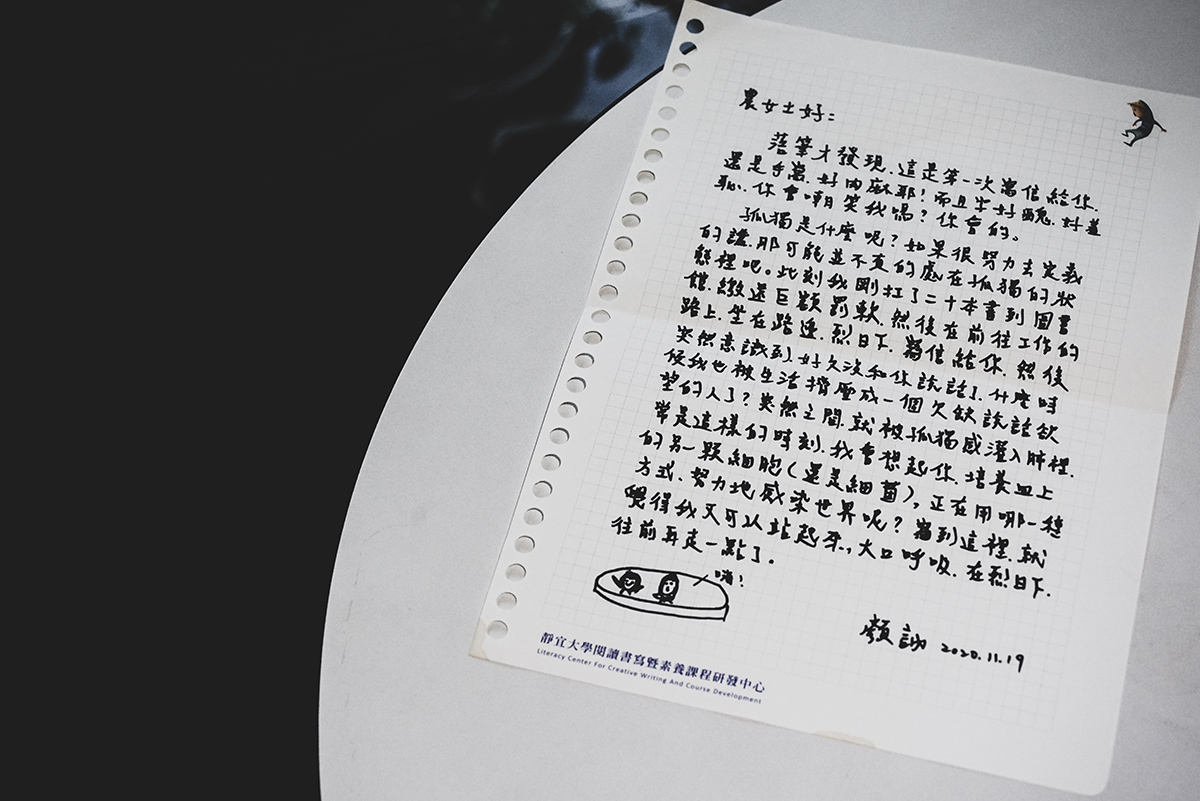 農女士好：
落筆才發現，這是第一次寫信給你，
還是手寫，好肉麻耶！而且字好醜，好羞
恥，你會嘲笑我嗎？你會的。
孤獨是什麼呢？如果很努力去定義
的話，那可能並不真的處在孤獨的狀
態裡吧。此刻我剛扛了二十本書到圖書
館，繳還巨額罰款，然後在前往工作的
路上，坐在路邊，烈日下，寫信給你，然後
突然意識到，好久沒和你說話了，什麼時
候我也被生活擠壓成一個欠缺說話欲
望的人了？突然之間，就被孤獨感灌入肺裡，
常是這樣的時刻，我會想起你，培養皿上
的另一顆細胞（還是細菌），正在用哪一種
方式，努力地感染世界呢？寫到這裡，就
覺得我又可以站起來，大口呼吸，在烈日下，
往前再走一點了。
嗨！
顏訥 2020.11.19
靜宜大學閱讀書寫暨素養課程研發中心
Literacy Center For Creative Writing And Course Development